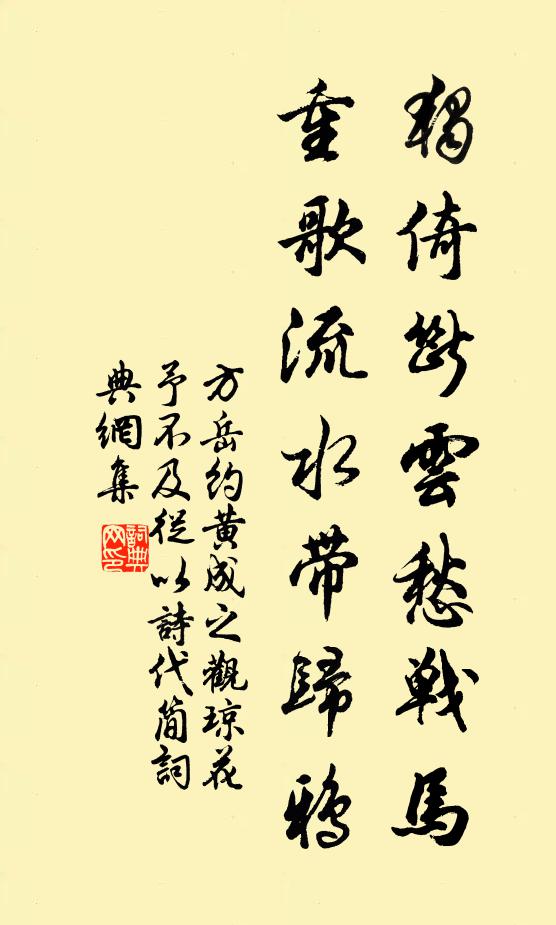 獨倚斷雲愁戰馬
重歌流水帶歸鴉
方岳約黃成之觀琼花
予不及從以詩代簡詞
典網集
詞典网印